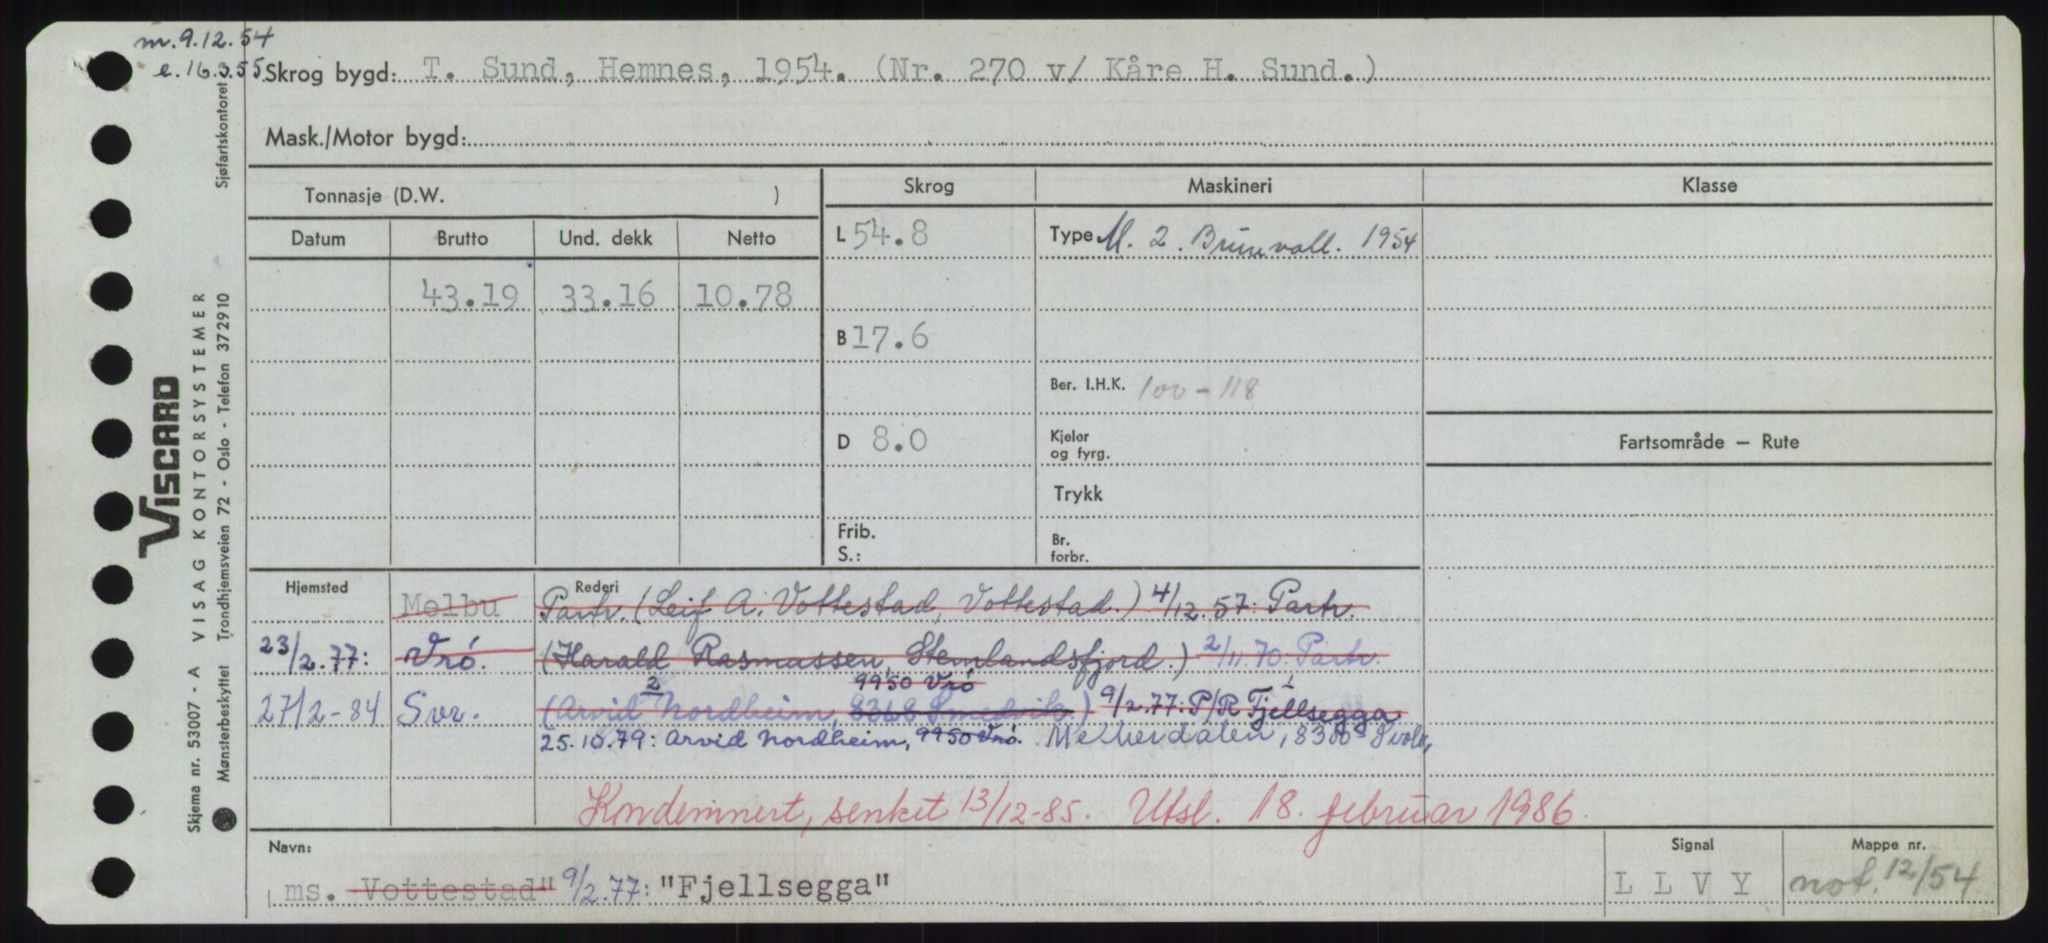 m. 9.12.54
e. 16.3.55
Skrog bygd: T. Sund, Hemnes, 1954. (Nr. 270 v/ Kåre H. Sund.)
Mask./Motor bygd:
Tonnasje (D.W. )
Skrog Maskineri Klasse
Datum Brutto Und. dekk Netto
L 54.8 Type M. 2. Brunvoll. 1954
43.19 33.16 10.78
B 17.6
Ber. I.H.K. 100-118
D 8.0 Kjeler og fyrg.
Fartsområde — Rute
Trykk
Frib. S.: Br. forbr.
Hjemsted Melbu Rederi Partr. (Leif A. Vottestad, Vottestad.) 4/12.57: Partr.
23/2.77: Vrö. (Harald Rasmussen, Stemlandsfjord.) 2/11.70: Partr.
9950 Vrö
27/2-84 Svr. (Arvid Nordheim, 8368 Smedvik.) 9/2.77: P/R Fjellsegga
25.10.79: Arvid Nordheim, 9950 Vrö. 8300
Kondemnert, senket 13/12-85. Utsl. 18. februar 1986.
Navn: ms. Vottestad" 9/2.77: "Fjellsegga"
Signal LLVY
Mappe nr. not. 12/54
Sjøfartskontoret
VISCARD
VISAG KONTORSYSTEMER
Skjema nr. 53007 - A
Mønsterbeskyttet Trondhjemsveien 72 - Oslo - Telefon 372910